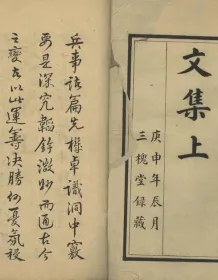 文集上
庚申年辰月
三槐堂錄藏
兵事諸篇先標卓識洞中竅
要是深究韜鈐微妙而通古今
之變者以此運籌決勝何憂氛祲